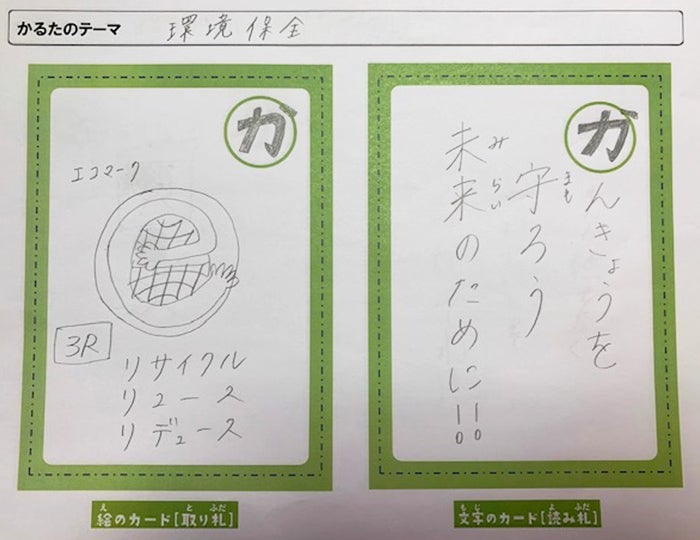 かるたのテーマ 環境保全
カ
エコマーク
3R
リサイクル
リユース
リデュース
絵のカード[取り札]
え と ふだ
カんきょうを
守ろう
まも
未来のために!!
みらい
文字のカード[読み札]
もじ よ ふだ